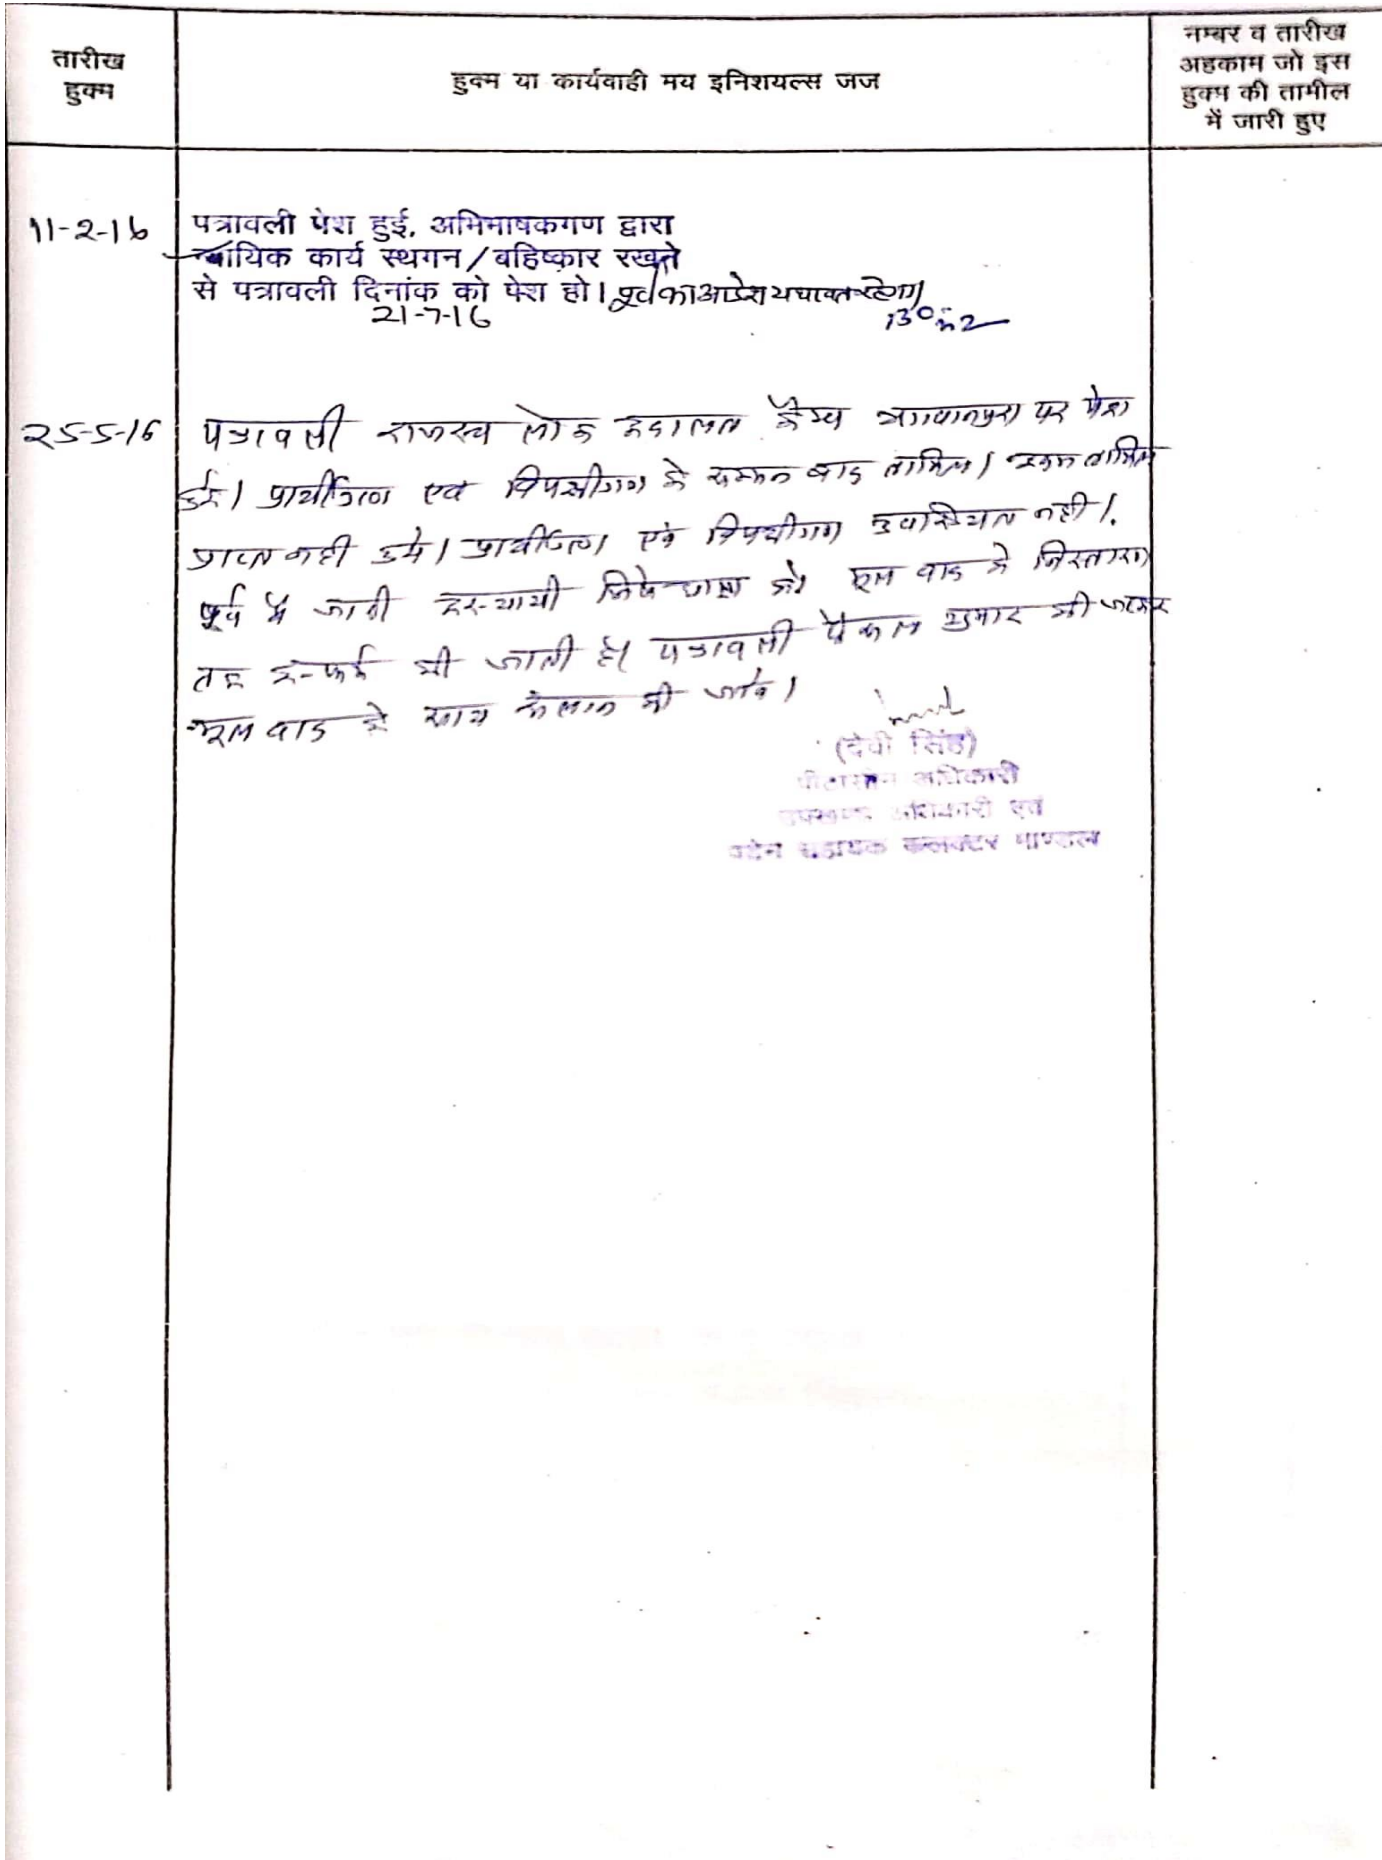 तारीख
हुक्म
हुक्म या कार्यवाही मय इनिशयल्स जज
नम्बर व तारीख
अहकाम जो इस
हुक्म की तामील
में जारी हुए
11-2-16
पत्रावली पेश हुई, अभिभाषकगण द्वारा
न्यायिक कार्य स्थगन/बहिष्कार रखने
से पत्रावली दिनांक को पेश हो। पूर्व का आदेश यथावत रहेगा
21-7-16
25-5-16
पत्रावली राजस्व लोक अदालत कैम्प भगवानपुरा पर पेश
हुई। प्रार्थीगण एवं विपक्षीगण के सम्मन बाद तामिल
प्राप्त नही हुये। प्रार्थीगण एवं विपक्षीगण उपस्थित नही।
पूर्व में जारी अस्थायी निषेधाज्ञा को मूल वाद के निस्तारण
तक की जाती है। पत्रावली फैसल शुमार की जाकर
मूल वाद के साथ संलग्न की जावे।
(देवी सिंह)
पीठासीन अधिकारी
उपखण्ड अधिकारी एवं
पदेन सहायक कलक्टर माण्डल